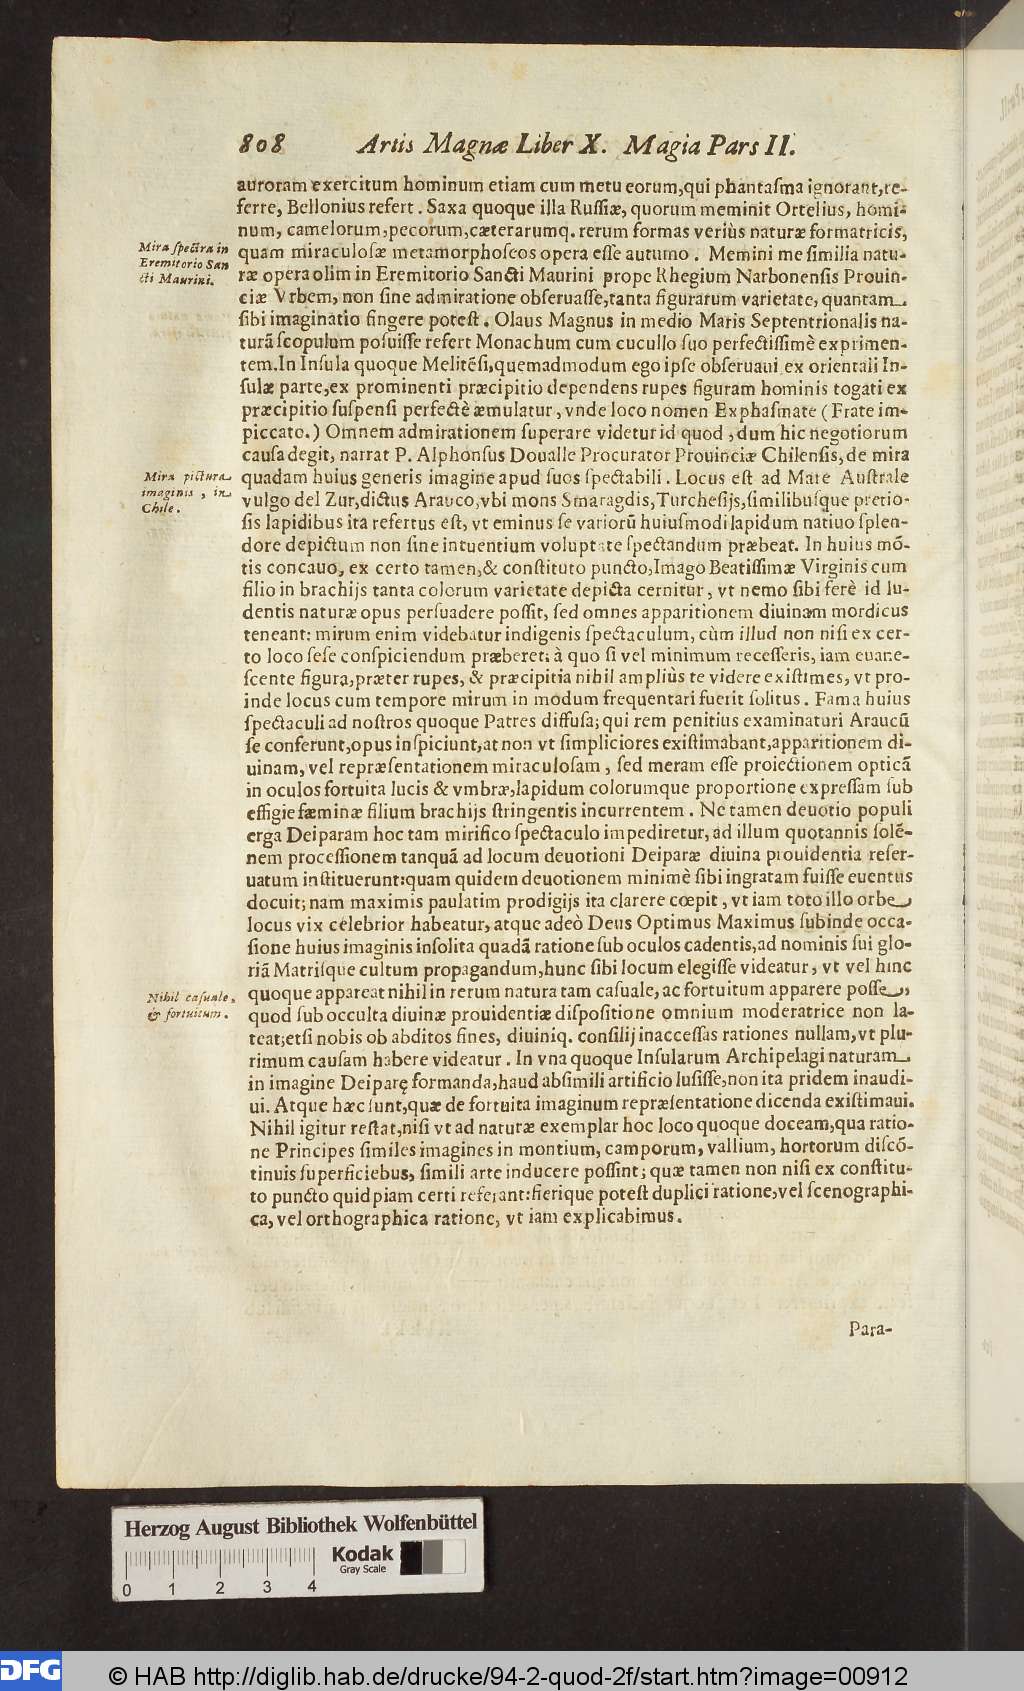 808 Artis Magnæ Liber X. Magia Pars II.
auroram exercitum hominum etiam cum metu eorum,qui phantaſma ignorant,re-
ferre, Bellonius refert. Saxa quoque illa Ruſſiæ, quorum meminit Ortelius, homi-
num, camelorum,pecorum,cæterarumq. rerum formas veriùs naturæ formatricis,
Mira ſpectra in
Eremitorio San
cti Maurini.
quam miraculoſæ metamorphoſeos opera eſſe autumo. Memini me ſimilia natu-
ræ opera olim in Eremitorio Sancti Maurini prope Rhegium Narbonenſis Prouin-
ciæ Vrbem, non ſine admiratione obſeruaſſe,tanta figurarum varietate, quantam
ſibi imaginatio fingere poteſt. Olaus Magnus in medio Maris Septentrionalis na-
turã ſcopulum poſuiſſe refert Monachum cum cucullo ſuo perfectiſſimè exprimen-
tem.In Inſula quoque Melitẽſi,quemadmodum ego ipſe obſeruaui ex orientali In-
ſulæ parte,ex prominenti præcipitio dependens rupes figuram hominis togati ex
præcipitio ſuſpenſi perfectè æmulatur, vnde loco nomen Exphaſmate (Frate im-
piccato.) Omnem admirationem ſuperare videtur id quod, dum hic negotiorum
cauſa degit, narrat P. Alphonſus Doualle Procurator Prouinciæ Chilenſis, de mira
Mira pictura
imaginis, in
Chile.
quadam huius generis imagine apud ſuos ſpectabili. Locus eſt ad Mare Auſtrale
vulgo del Zur,dictus Arauco,vbi mons Smaragdis,Turcheſijs,ſimilibuſque pretio-
ſis lapidibus ita refertus eſt, vt eminus ſe variorũ huiuſmodi lapidum natiuo ſplen-
dore depictum non ſine intuentium voluptate ſpectandum præbeat. In huius mõ-
tis concauo, ex certo tamen,& conſtituto puncto,Imago Beatiſſimæ Virginis cum
filio in brachijs tanta colorum varietate depicta cernitur, vt nemo ſibi ferè id lu-
dentis naturæ opus perſuadere poſſit, ſed omnes apparitionem diuinam mordicus
teneant: mirum enim videbatur indigenis ſpectaculum, cùm illud non niſi ex cer-
to loco ſeſe conſpiciendum præberet: à quo ſi vel minimum receſſeris, iam euane-
ſcente figura,præter rupes, & præcipitia nihil ampliùs te videre exiſtimes, vt pro-
inde locus cum tempore mirum in modum frequentari fuerit ſolitus. Fama huius
ſpectaculi ad noſtros quoque Patres diffuſa; qui rem penitius examinaturi Araucũ
ſe conferunt,opus inſpiciunt,at non vt ſimpliciores exiſtimabant,apparitionem di-
uinam, vel repræſentationem miraculoſam, ſed meram eſſe proiectionem opticã
in oculos fortuita lucis & vmbræ,lapidum colorumque proportione expreſſam ſub
effigie fæminæ filium brachijs ſtringentis incurrentem. Ne tamen deuotio populi
erga Deiparam hoc tam mirifico ſpectaculo impediretur, ad illum quotannis ſolẽ-
nem proceſſionem tanquã ad locum deuotioni Deiparæ diuina prouidentia reſer-
uatum inſtituerunt:quam quidem deuotionem minimè ſibi ingratam fuiſſe euentus
docuit; nam maximis paulatim prodigijs ita clarere cœpit, vt iam toto illo orbe
locus vix celebrior habeatur, atque adeò Deus Optimus Maximus ſubinde occa-
ſione huius imaginis inſolita quadã ratione ſub oculos cadentis,ad nominis ſui glo-
riã Matriſque cultum propagandum,hunc ſibi locum elegiſſe videatur, vt vel hinc
Nihil caſuale,
& fortuitum.
quoque appareat nihil in rerum natura tam caſuale, ac fortuitum apparere poſſe,
quod ſub occulta diuinæ prouidentiæ diſpoſitione omnium moderatrice non la-
teat;etſi nobis ob abditos fines, diuiniq. conſilij inacceſſas rationes nullam,vt plu-
rimum cauſam habere videatur. In vna quoque Inſularum Archipelagi naturam
in imagine Deiparę formanda,haud abſimili artificio luſiſſe,non ita pridem inaudi-
ui. Atque hæc ſunt,quæ de fortuita imaginum repræſentatione dicenda exiſtimaui.
Nihil igitur reſtat,niſi vt ad naturæ exemplar hoc loco quoque doceam,qua ratio-
ne Principes ſimiles imagines in montium, camporum, vallium, hortorum diſcõ-
tinuis ſuperficiebus, ſimili arte inducere poſſint; quæ tamen non niſi ex conſtitu-
to puncto quidpiam certi referant:fierique poteſt duplici ratione,vel ſcenographi-
ca, vel orthographica ratione, vt iam explicabimus.
Para-
Herzog August Bibliothek Wolfenbüttel
Kodak
Gray Scale
0 1 2 3 4
DFG
© HAB http://diglib.hab.de/drucke/94-2-quod-2f/start.htm?image=00912